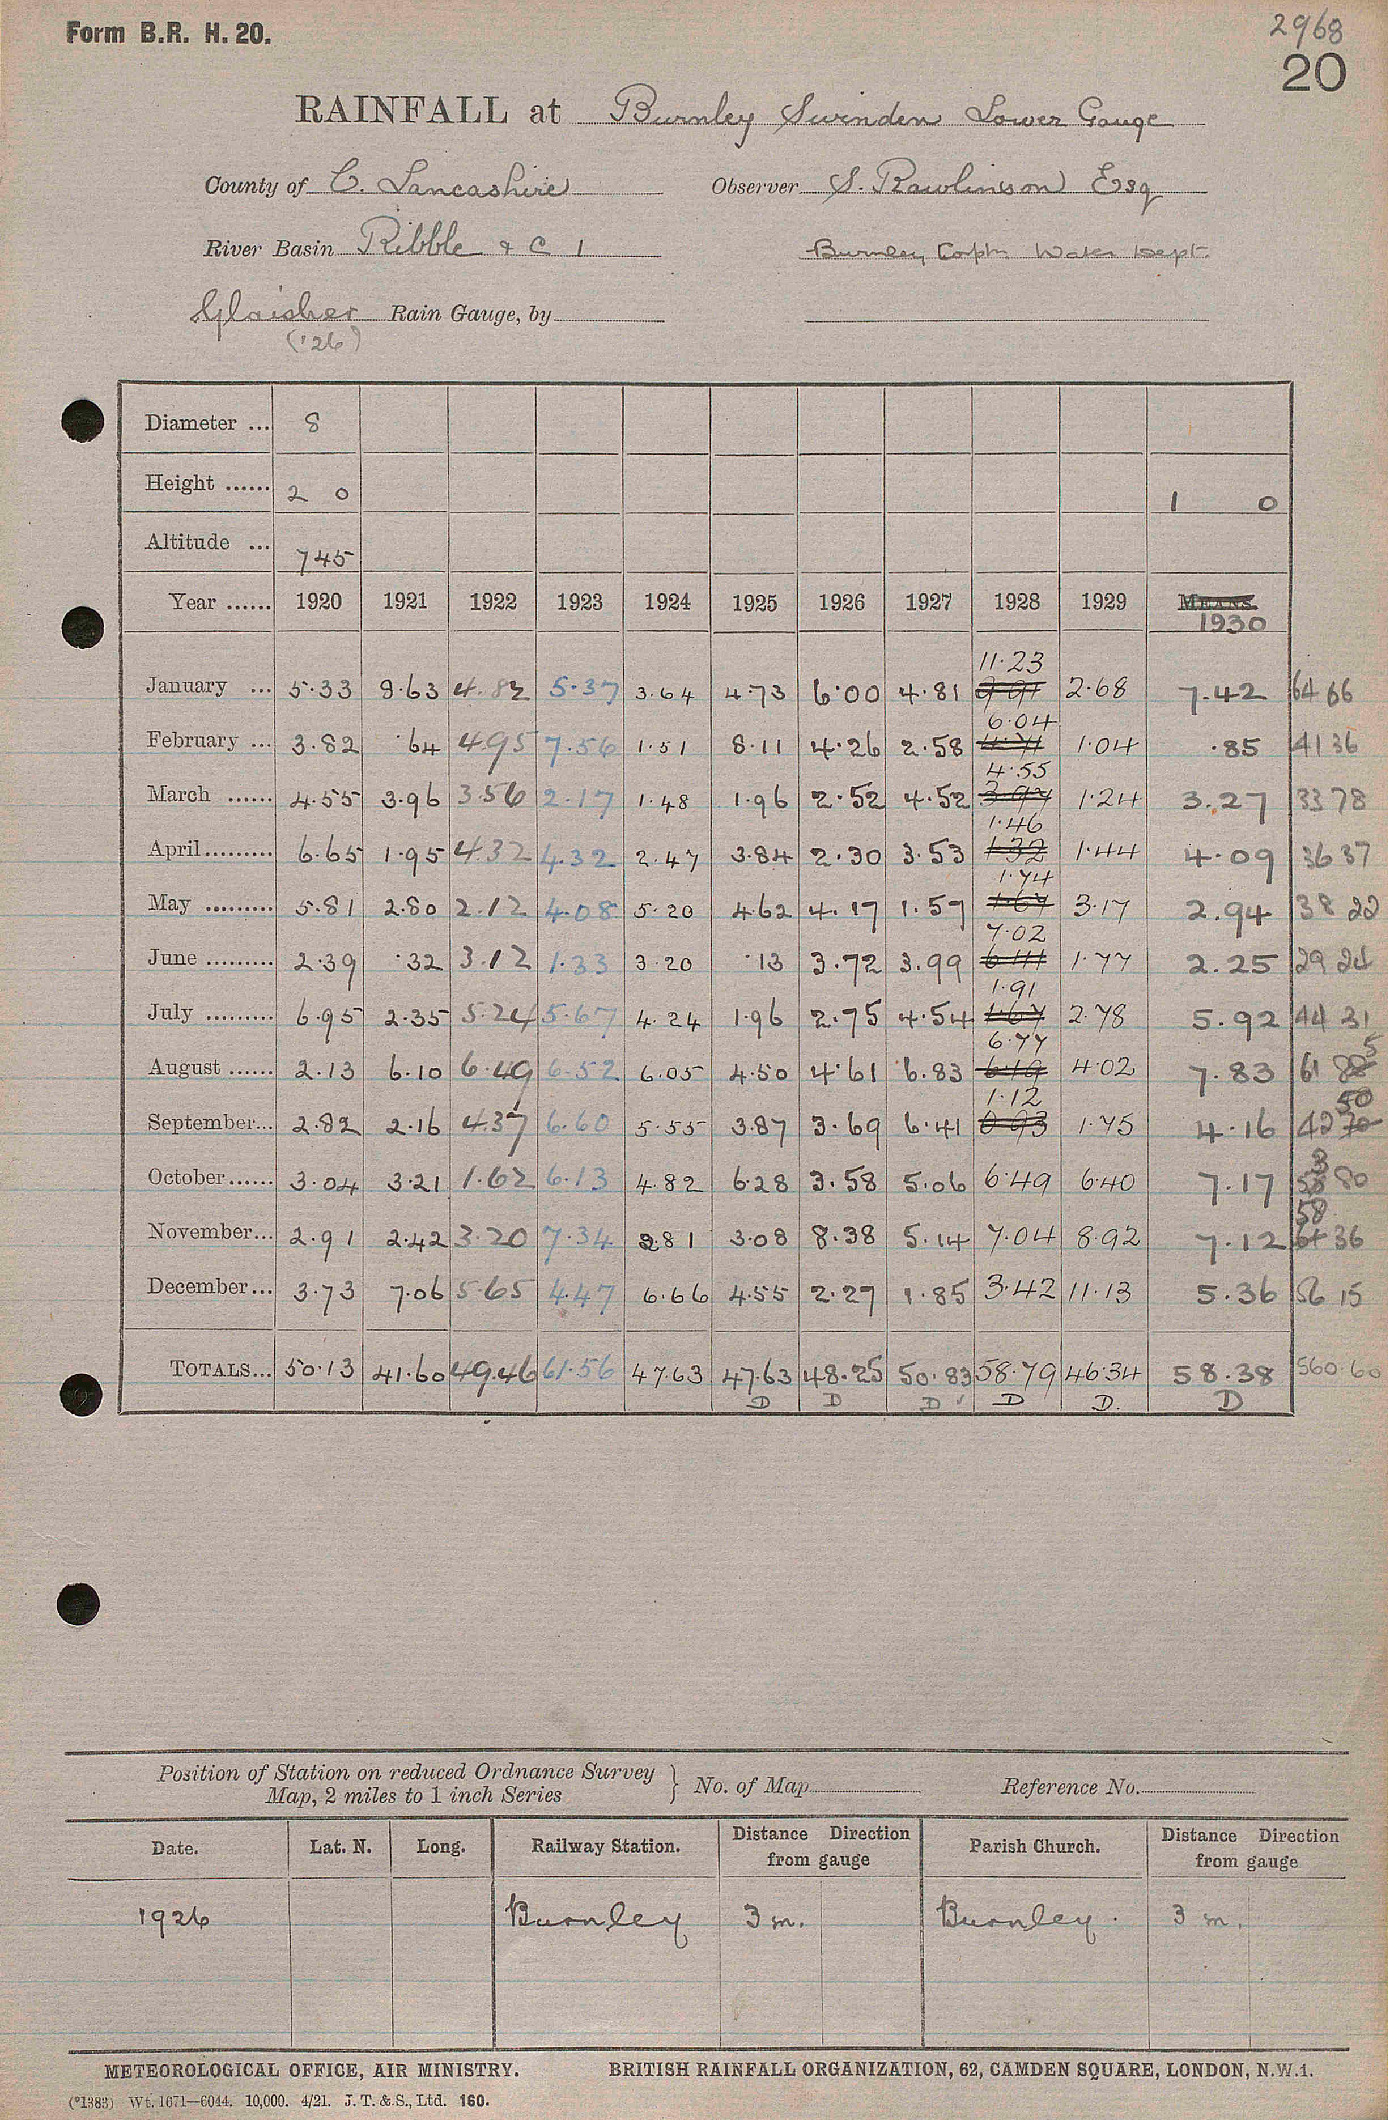 Form B.R. H. 20.
2968
20
RAINFALL at Burnley Swinden Lower Gauge
County of C. Lancashire Observer S. Rawlinson Esq
River Basin Ribble & C 1 Burnley Corptn Water Dept.
Glaisher Rain Gauge, by
('26)
Diameter ... 8
Height ...... 2 0 1 0
Altitude ... 745
Year ...... 1920 1921 1922 1923 1924 1925 1926 1927 1928 1929 MEANS
1930
11.23
January ... 5.33 8.63 4.82 5.37 3.64 4.73 6.00 4.81 9.91 2.68 7.42 64 66
6.04
February ... 3.82 .64 4.95 7.56 1.51 8.11 4.26 2.58 1.04 .85 41 36
4.55
March ...... 4.55 3.96 3.56 2.17 1.48 1.96 2.52 4.52 3.97 1.24 3.27 33 78
1.46
April ......... 6.65 1.95 4.32 4.32 2.47 3.84 2.30 3.53 1.32 1.44 4.09 36 37
1.74
May ......... 5.81 2.80 2.12 4.08 5.20 4.62 4.17 1.57 1.67 3.17 2.94 38 22
7.02
June ......... 2.39 .32 3.12 1.33 3.20 .13 3.72 3.99 6.41 1.77 2.25 29 24
1.91
July ......... 6.95 2.35 5.24 5.67 4.24 1.96 2.75 4.54 1.67 2.78 5.92 44 31
6.77 5
August ...... 2.13 6.10 6.49 6.52 6.05 4.50 4.61 6.83 6.19 4.02 7.83 61 88
1.12 50
September... 2.82 2.16 4.37 6.60 5.55 3.87 3.69 6.41 0.93 1.75 4.16 42 70
October...... 3.04 3.21 1.62 6.13 4.82 6.28 3.58 5.06 6.49 6.40 7.17 80
58
November... 2.91 2.42 3.20 7.34 2.81 3.08 8.38 5.14 7.04 8.92 7.12 36
December... 3.73 7.06 5.65 4.47 6.66 4.55 2.27 1.85 3.42 11.13 5.36 56 15
TOTALS... 50.13 41.60 49.46 61.56 47.63 47.63 48.25 50.83 58.79 46.34 58.38 560.60
D D D D D. D
Position of Station on reduced Ordnance Survey
Map, 2 miles to 1 inch Series } No. of Map Reference No.
Date. Lat. N. Long. Railway Station. Distance Direction from gauge Parish Church. Distance Direction from gauge
1926 Burnley 3 m. Burnley. 3 m.
METEOROLOGICAL OFFICE, AIR MINISTRY. BRITISH RAINFALL ORGANIZATION, 62, CAMDEN SQUARE, LONDON, N.W.1.
(*1383) Wt. 1671—6044. 10,000. 4/21. J. T. & S., Ltd. 160.